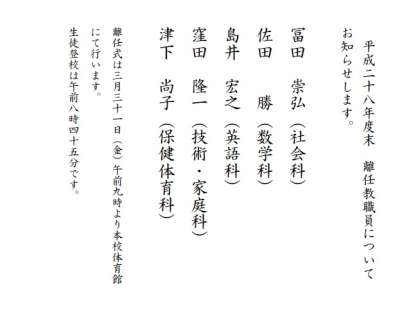 平成二十八年度末　離任教職員について
お知らせします。
冨田　崇弘（社会科）
佐田　　勝（数学科）
島井　宏之（英語科）
窪田　隆一（技術・家庭科）
津下　尚子（保健体育科）
離任式は三月三十一日（金）午前九時より本校体育館
にて行います。
生徒登校は午前八時四十五分です。